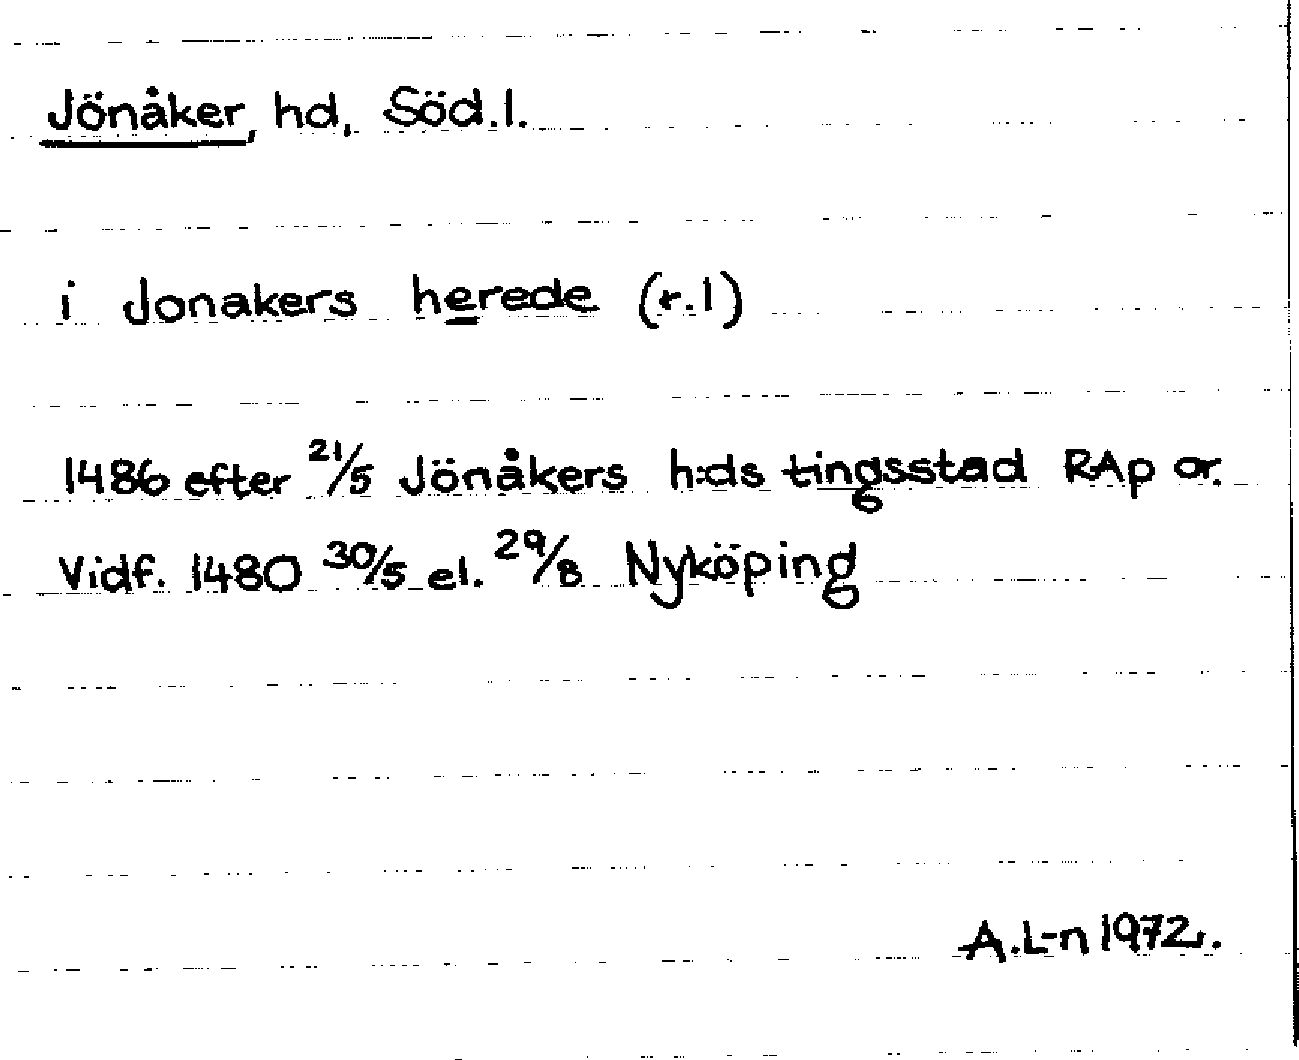 Jönåker, hd, Söd.l.
i Jonakers herede (r.1)
1486 efter 21/5 Jönåkers h:ds tingsstad RAp or.
Vidf. 1480 30/5 el. 29/8 Nyköping
A.L-n 1972.